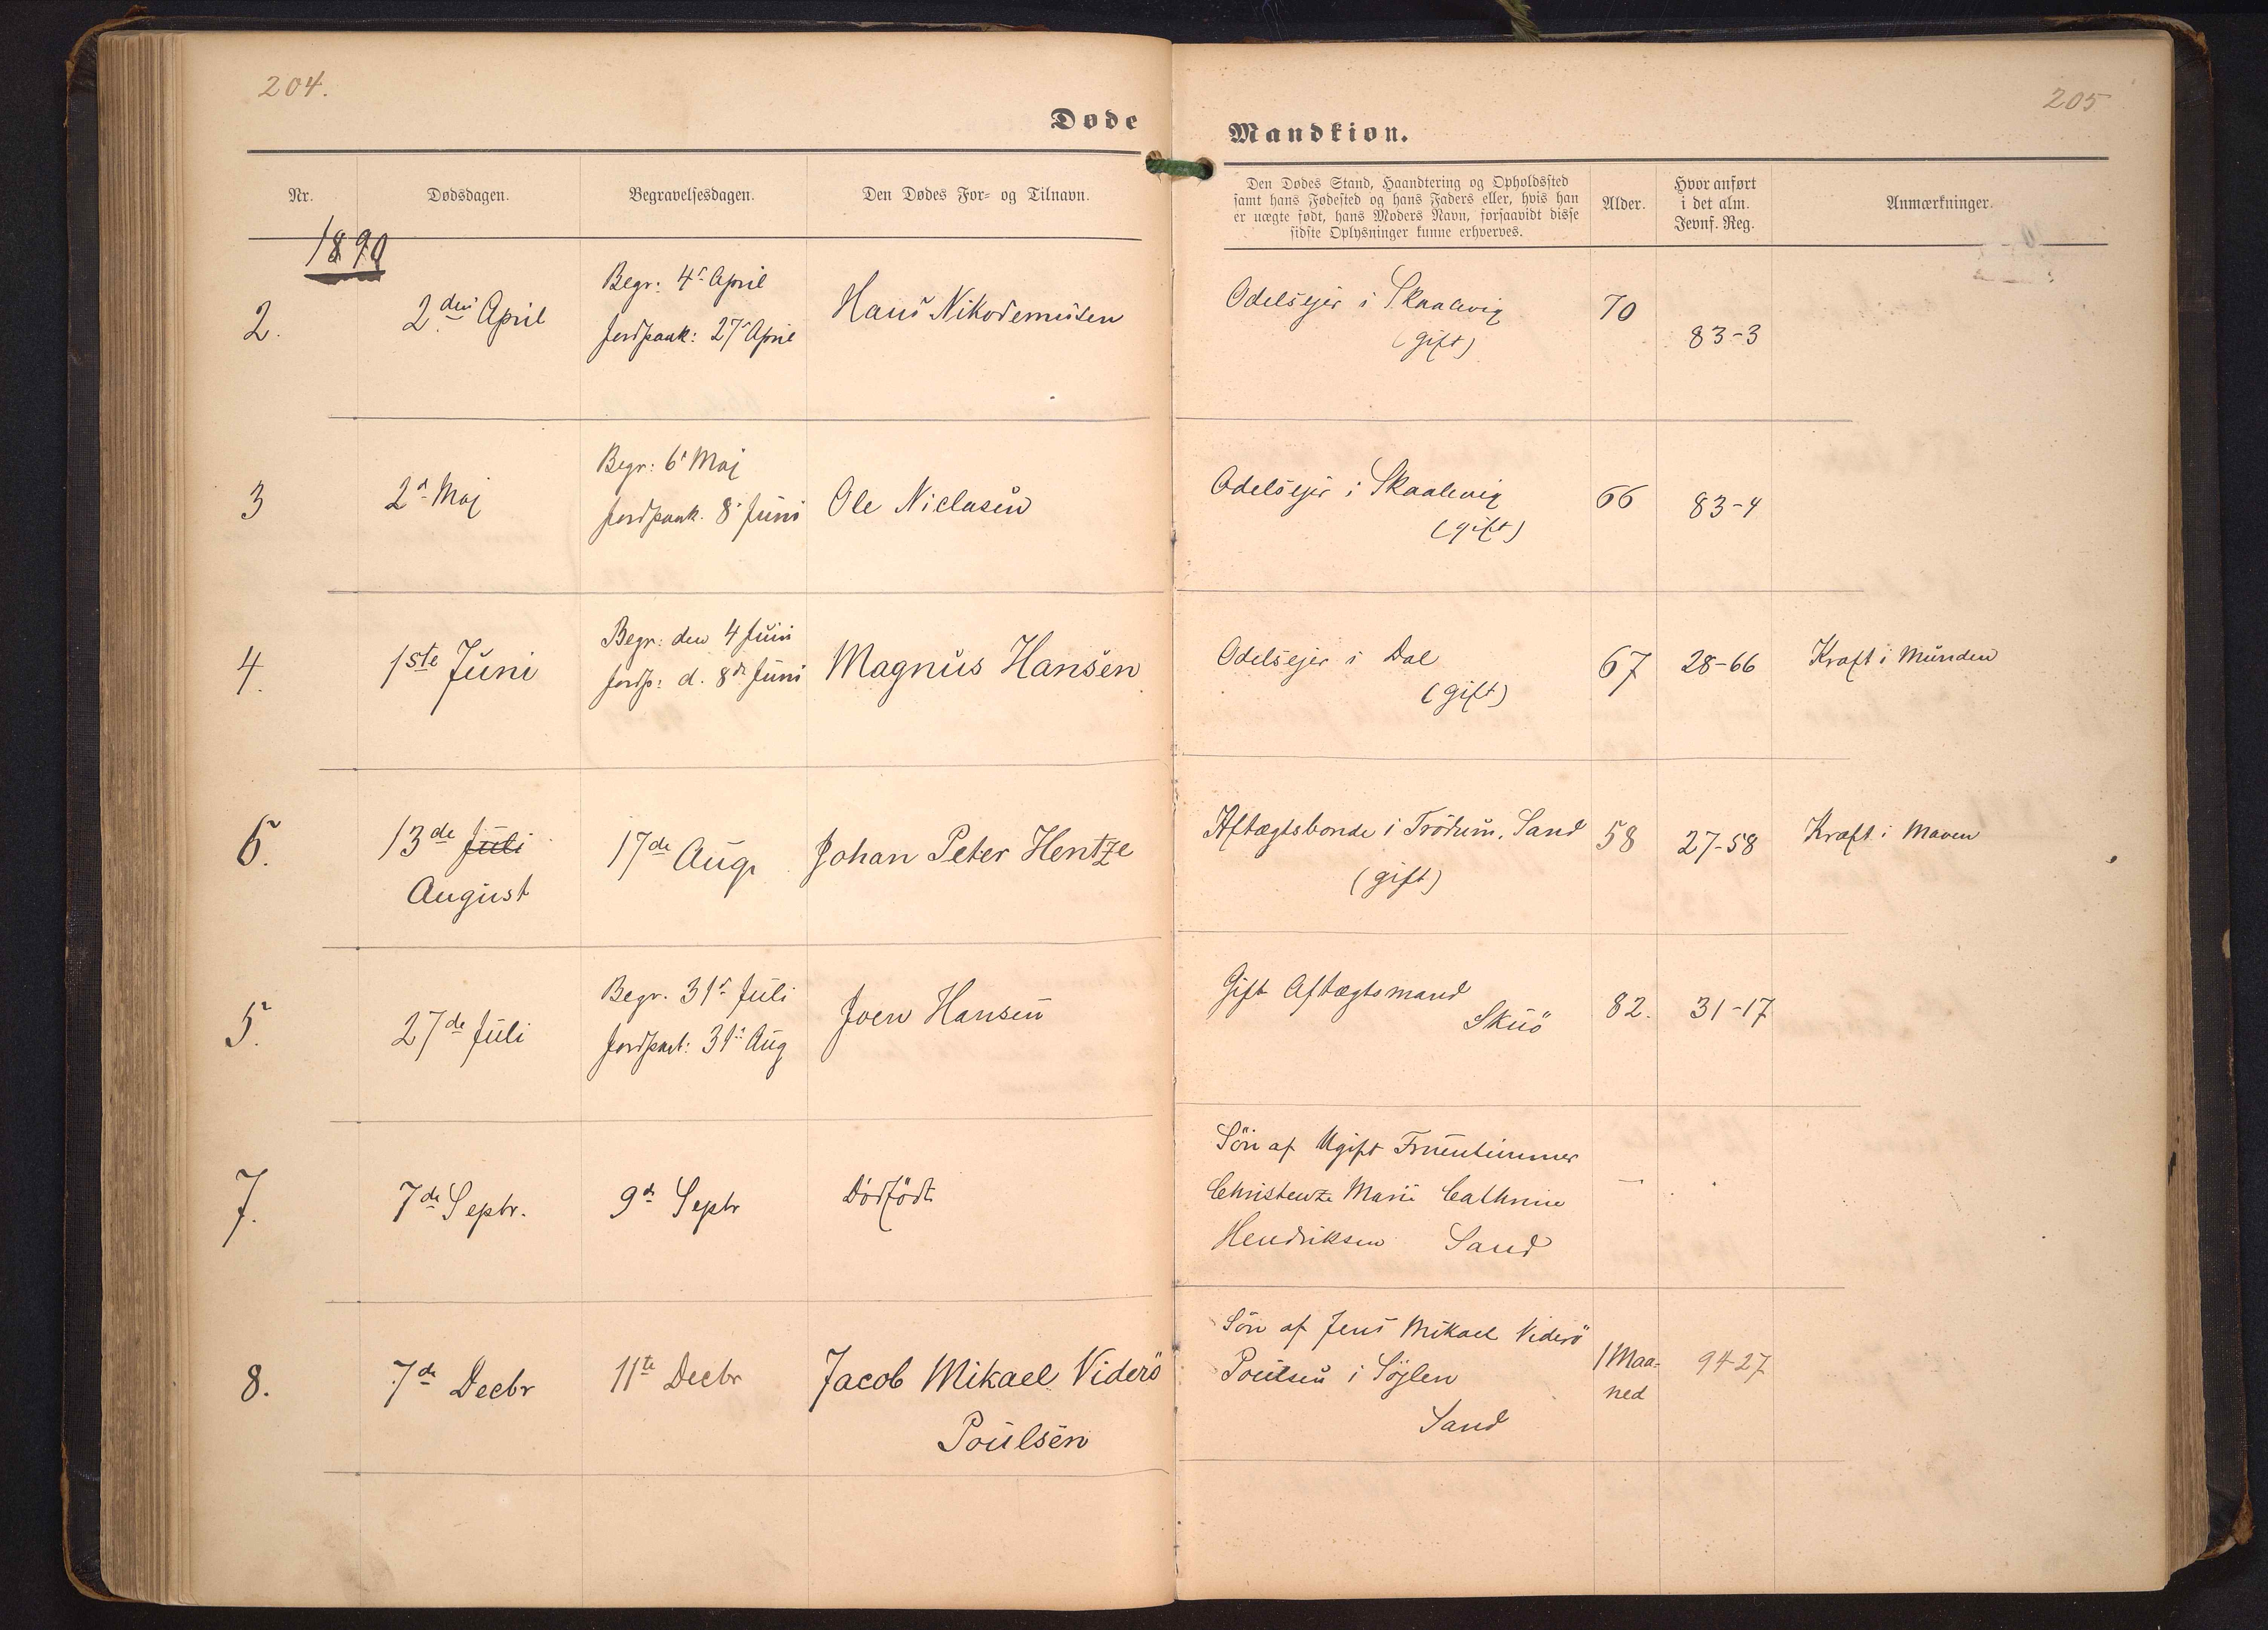 204.
205
Døde
Mandkiøn.
Nr.
Dødsdagen.
Begravelsesdagen.
Den Dødes For- og Tilnavn.
Den Dødes Stand, Haandtering og Opholdssted
samt hans Fødested og hans Faders eller, hvis han
er uægte født, hans Moders Navn, forsaavidt disse
sidste Oplysninger kunne erhverves.
Alder.
Hvor anført
i det alm.
Jevnf. Reg.
Anmærkninger.
1890
2.
2den April
Begr: 4d April
Jordpaak: 27d April
Hans Nikodemusen
Odelsejer i Skaalevig
(gift)
70
83-3
3
2d Maj
Begr: 6d Maj
Jordpaak. 8d Juni
Ole Niclasen
Odelsejer i Skaalevig
(gift)
66
83-4
4.
1ste Juni
Begr: den 4 Juni
Jordp: d. 8de Juni
Magnus Hansen
Odelsejer i Dal
(gift)
67
28-66
Kræft i Munden
6.
13de Juli
August
17de Aug.
Johan Peter Hentze
Aftægtsbonde i Trödum, Sand
(gift)
58
27-58
Kræft i Maven
5.
27de Juli
Begr. 31d Juli
Jordpaak: 31d Aug
Joen Hansen
Gift Aftægtsmand
Skuö
82.
31-17
7.
7de Septr.
9de Septr
Dödfödt
Sön af Ugift Fruentimmer
Christenze Marie Cathrine
Hendriksen Sand
—
8.
7de Decbr
11te Decbr
Jacob Mikael Viderö
Poulsen
Sön af Jens Mikael Viderö
Poulsen i Söjlen
Sand
1 Maa-
ned
94-27